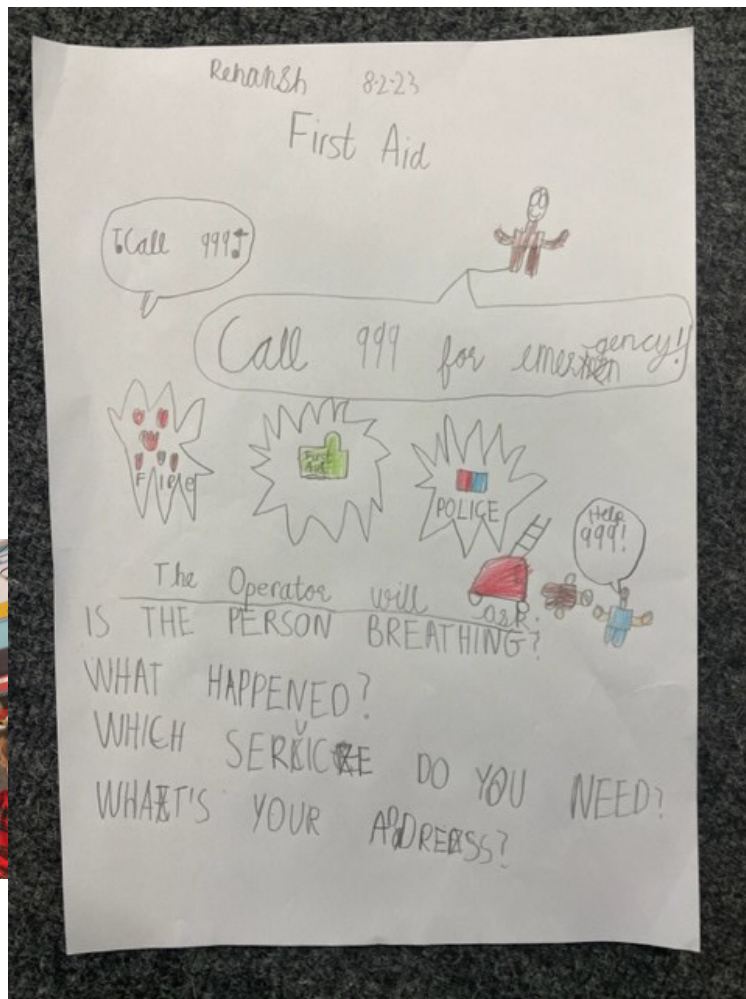 Rehansh 8-2-23
First Aid
Call 999
Call 999 for emergency!
Fire
First Aid
POLICE
Help 999!
The Operator will ask:
IS THE PERSON BREATHING?
WHAT HAPPENED?
WHICH SERVICE DO YOU NEED?
WHAT'S YOUR ADDRESS?